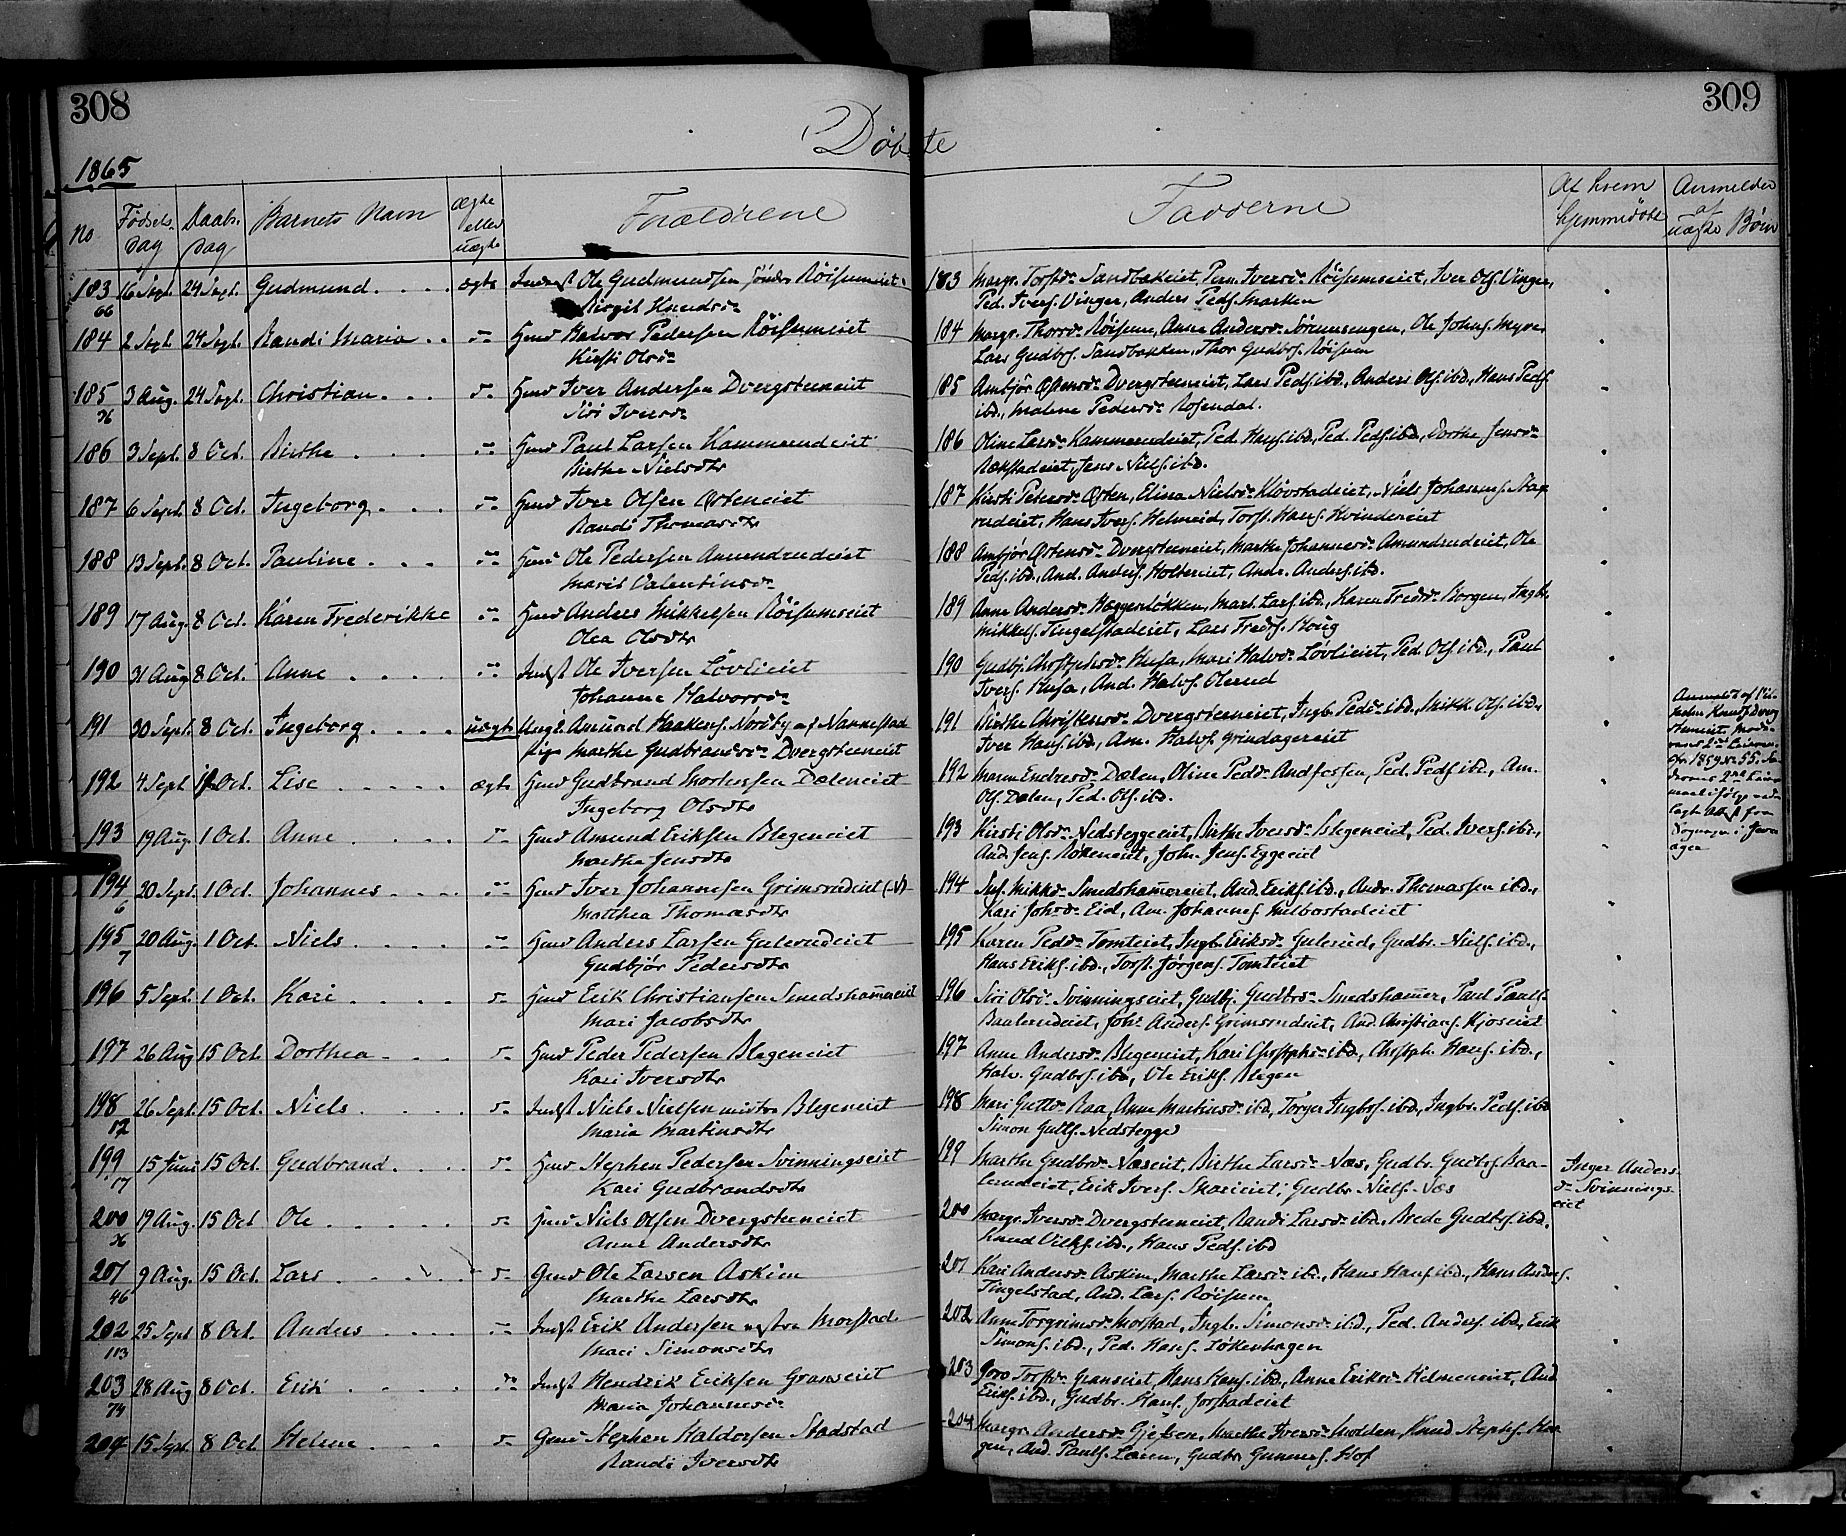 308
309
Døbte
1865
No
Fødsels-
Dag
Daabs-
Dag
Barnets Navn
Ægte
eller
uægte
Forældrene
Fadderne
Af hvem
hjemmedøbt
Anmelder
af
uægte Børn
183 16 Sept. 24 Sept. Gudmund ægte Inderst Ole Gudmundsen Søndre Røisumeiet
66 Birgit Knudsd.
184 2 Sept. 24 Sept. Randi Maria Hmd Halvor Pedersen Røisumeiet
Kirsti Olsd.
185 3 Aug. 24 Sept. Christian Hmd Iver Andersen Dvergsteneiet
Siri Iversd.
186 3 Sept. 8 Oct. Birthe Hmd Paul Larsen Kammerudeiet
Birthe Nielsdtr
187 6 Sept. 8 Oct. Ingeborg Hmd Iver Olsen Østeneiet
Randi Thomasdtr
188 13 Sept. 8 Oct. Pauline Hmd Ole Pedersen Amundrudeiet
Marit Valentinsd.
189 17 Aug. 8 Oct. Karen Frederikke Hmd Anders Mikkelsen Røisumseiet
Olea Olsdtr
190 31 Aug 8 Oct. Anne Indst Ole Iversen Løvlieiet
Johanne Halvorsd.
191 30 Sept. 8 Oct. Ingeborg uægte Ungk. Amund Haakens. Nordby af Nannestad
Pige Marthe Gudbrandsd. Dvergsteneiet
192 4 Sept Oct. Lise ægte Hmd Gudbrand Mortensen Dæleneiet
Ingeborg Olsdtr
193 19 Aug. 1 Oct. Anne Hmd Amund Eriksen Blegeneiet
Marthe Jensdtr
194 20 Sept. 1 Oct. Johannes Hmd Iver Johannesen Grimsrudeiet
6 Matthea Thomasdtr
195 20 Aug. 1 Oct. Niels Hmd Anders Larsen Gulerudeiet
7 Gudbjør Pedersdtr
196 5 Sept. 1 Oct. Kari Hmd Erik Christiansen Smedshamereiet
Mari Jacobsdtr
197 26 Aug 15 Oct. Dorthea Hmd Peder Pedersen Blegeneiet
Kari Iversdtr
198 26 Sept. 15 Oct. Niels Indst Niels Nielsen midtre Blegeneiet
12 Maria Martinsdtr
199 15 Juni 15 Oct. Gudbrand Hmd Stephen Pedersen Svinningseiet
17 Kari Gudbrandsdtr
200 19 Aug. 15 Oct Ole Hmd Niels Olsen Dvergsteneiet
Anne Andersdtr
201 9 Aug. 15 Oct. Lars Gmd Ole Larsen Askim
46 Marthe Larsdtr
202 25 Sept 8 Oct. Anders Indst Erik Andersen vestre Morstad
113 Mari Simonsdtr
203 28 Aug 8 Oct. Erik Indst Hendrik Eriksen Granseiet
74 Maria Johannesd.
204 15 Sept. 8 Oct Helene Gmd Stephen Haldorsen Stadstad
Randi Iversdtr
183 Margr. Torstd. Sandbakeiet, Pern. Iversd. Røisumseiet, Iver Ols. Vinger,
Ped. Ivers. Vinger, Anders Peds. Marken
184 Margr. Thorsd. Røisum, Anne Andersd. Sørumsengen, Ole Johns. Myre,
Lars Gudbrs. Sandbakken, Thor Gudbrs. Røisum
185 Ambjør Østensd. Dvergsteneiet, Lars Peds. ibd., Anders Ols. ibd., Hans Peds.
ibd., Malene Pedersd. Rosendal.
186 Oline Larsd. Kammerudeiet, Ped. Hans. ibd., Ped. Peds. ibd., Dorthe Jensd.
Rækstadeiet, Jens Niels. ibd.
187 Kirsti Petersd. Østen, Elina Nielsd. Kløvstadeiet, Niels Johannes.
rudeiet, Hans Ivers. Helmeid, Torst. Hans. Hvindeneiet
188 Ambjør Østensd. Dvergsteneiet, Marthe Johannesd. Amundrudeiet, Ole
Peds. ibd., And. Anders. Holteneiet, Andr. Anders. ibd.
189 Anne Andersd. Haggenløkken, Mart. Lars. ibd., Karen Fredsd. Borgen, Ingb.
Mikkels. Tingelstadeiet, Lars Freds. Houg
190 Gudbj. Christphersd. Husa, Mari Halvd. Løvlieiet, Ped. Ols. ibd., Paul
Ivers. Husa, And. Halvs. Olerud
191 Birthe Christensd. Dvergsteneiet, Ingb. Pedsd. ibd., Mikk. Ols. ibd.,
Iver Hans. ibd., Am. Halvs. Grindageneiet
192 Maren Endresd. Dælen, Oline Pedsd. Ped. Peds. ibd., Am.
Ols. Dælen, Ped. Ols. ibd.
193 Kirsti Olsd. Nedreeggeeiet, Birthe Iversd. Blegeneiet, Ped. Ivers. ibd.,
And. Jens. Røkeneiet, John Jens. Eggeeiet
194 Mikkd. Smedshamereiet, And. Eriks. ibd., Andr. Thomassen ibd.,
Kari Johsd. Eid, Am. Johannes. Helbostadeiet
195 Karen Pedsd. Tomteiet, Ingb. Eriksd. Gulerud, Gudbr. Niels. ibd.,
Hans Eriks. ibd., Torst. Jørgens. Tomteiet
196 Siri Olsd. Svinningseiet, Gudbj. Gudbrsd. Smedshamer, Paul Pauls.
Baalerudeiet, Joh. Anders. Grimsrudeiet, And. Christians. Kjoseiet
197 Anne Andersd. Blegeneiet, Kari Christphsd. ibd., Christph. Hans. ibd.,
Halv. Gudbrs. ibd., Ole Eriks. Blegen
198 Mari Guttd. Raa, Anne Martinsd. ibd., Torger Ingbrs. ibd., Ingbr. Peds. ibd
Simon Gulls. Nedreegge
199 Marthe Gudbrd. Næseiet, Birthe Larsd. Næs, Gudbr. Gudbrs. Baa-
lerudeiet, Erik Ivers. Gudbr. Niels. Næs
Inger Anders-
d. Svinnings-
eiet
200 Margr. Iversd. Dvergsteneiet, Randi Larsd. ibd., Brede Gudbrs. ibd.,
Knud ibd., Hans Peds. ibd
201 Kari Andersd. Askim, Marthe Larsd. ibd., Hans Hans. ibd., Hans Anders.
Tingelstad, And. Lars. Røisum
202 Anne Torgrimsd. Morstad, Ingb. Simonsd. ibd., Ped. Anders. ibd., Erik
Simons. ibd., Ped. Hans. Løkenhagen
203 Goro Torstd. Granseiet, Hans Hans. ibd., Anne Eriksd. Helmeneiet, And.
Eriks. ibd., Gudbr. Hans. Jorstadeiet
204 Margr. Andersd. Gjefsen, Marthe Iversd. Modden, Knud Stephs. Haa-
gen, And. Pauls. Løken, Gudbr. Gunners. Hof
Anmeldt af